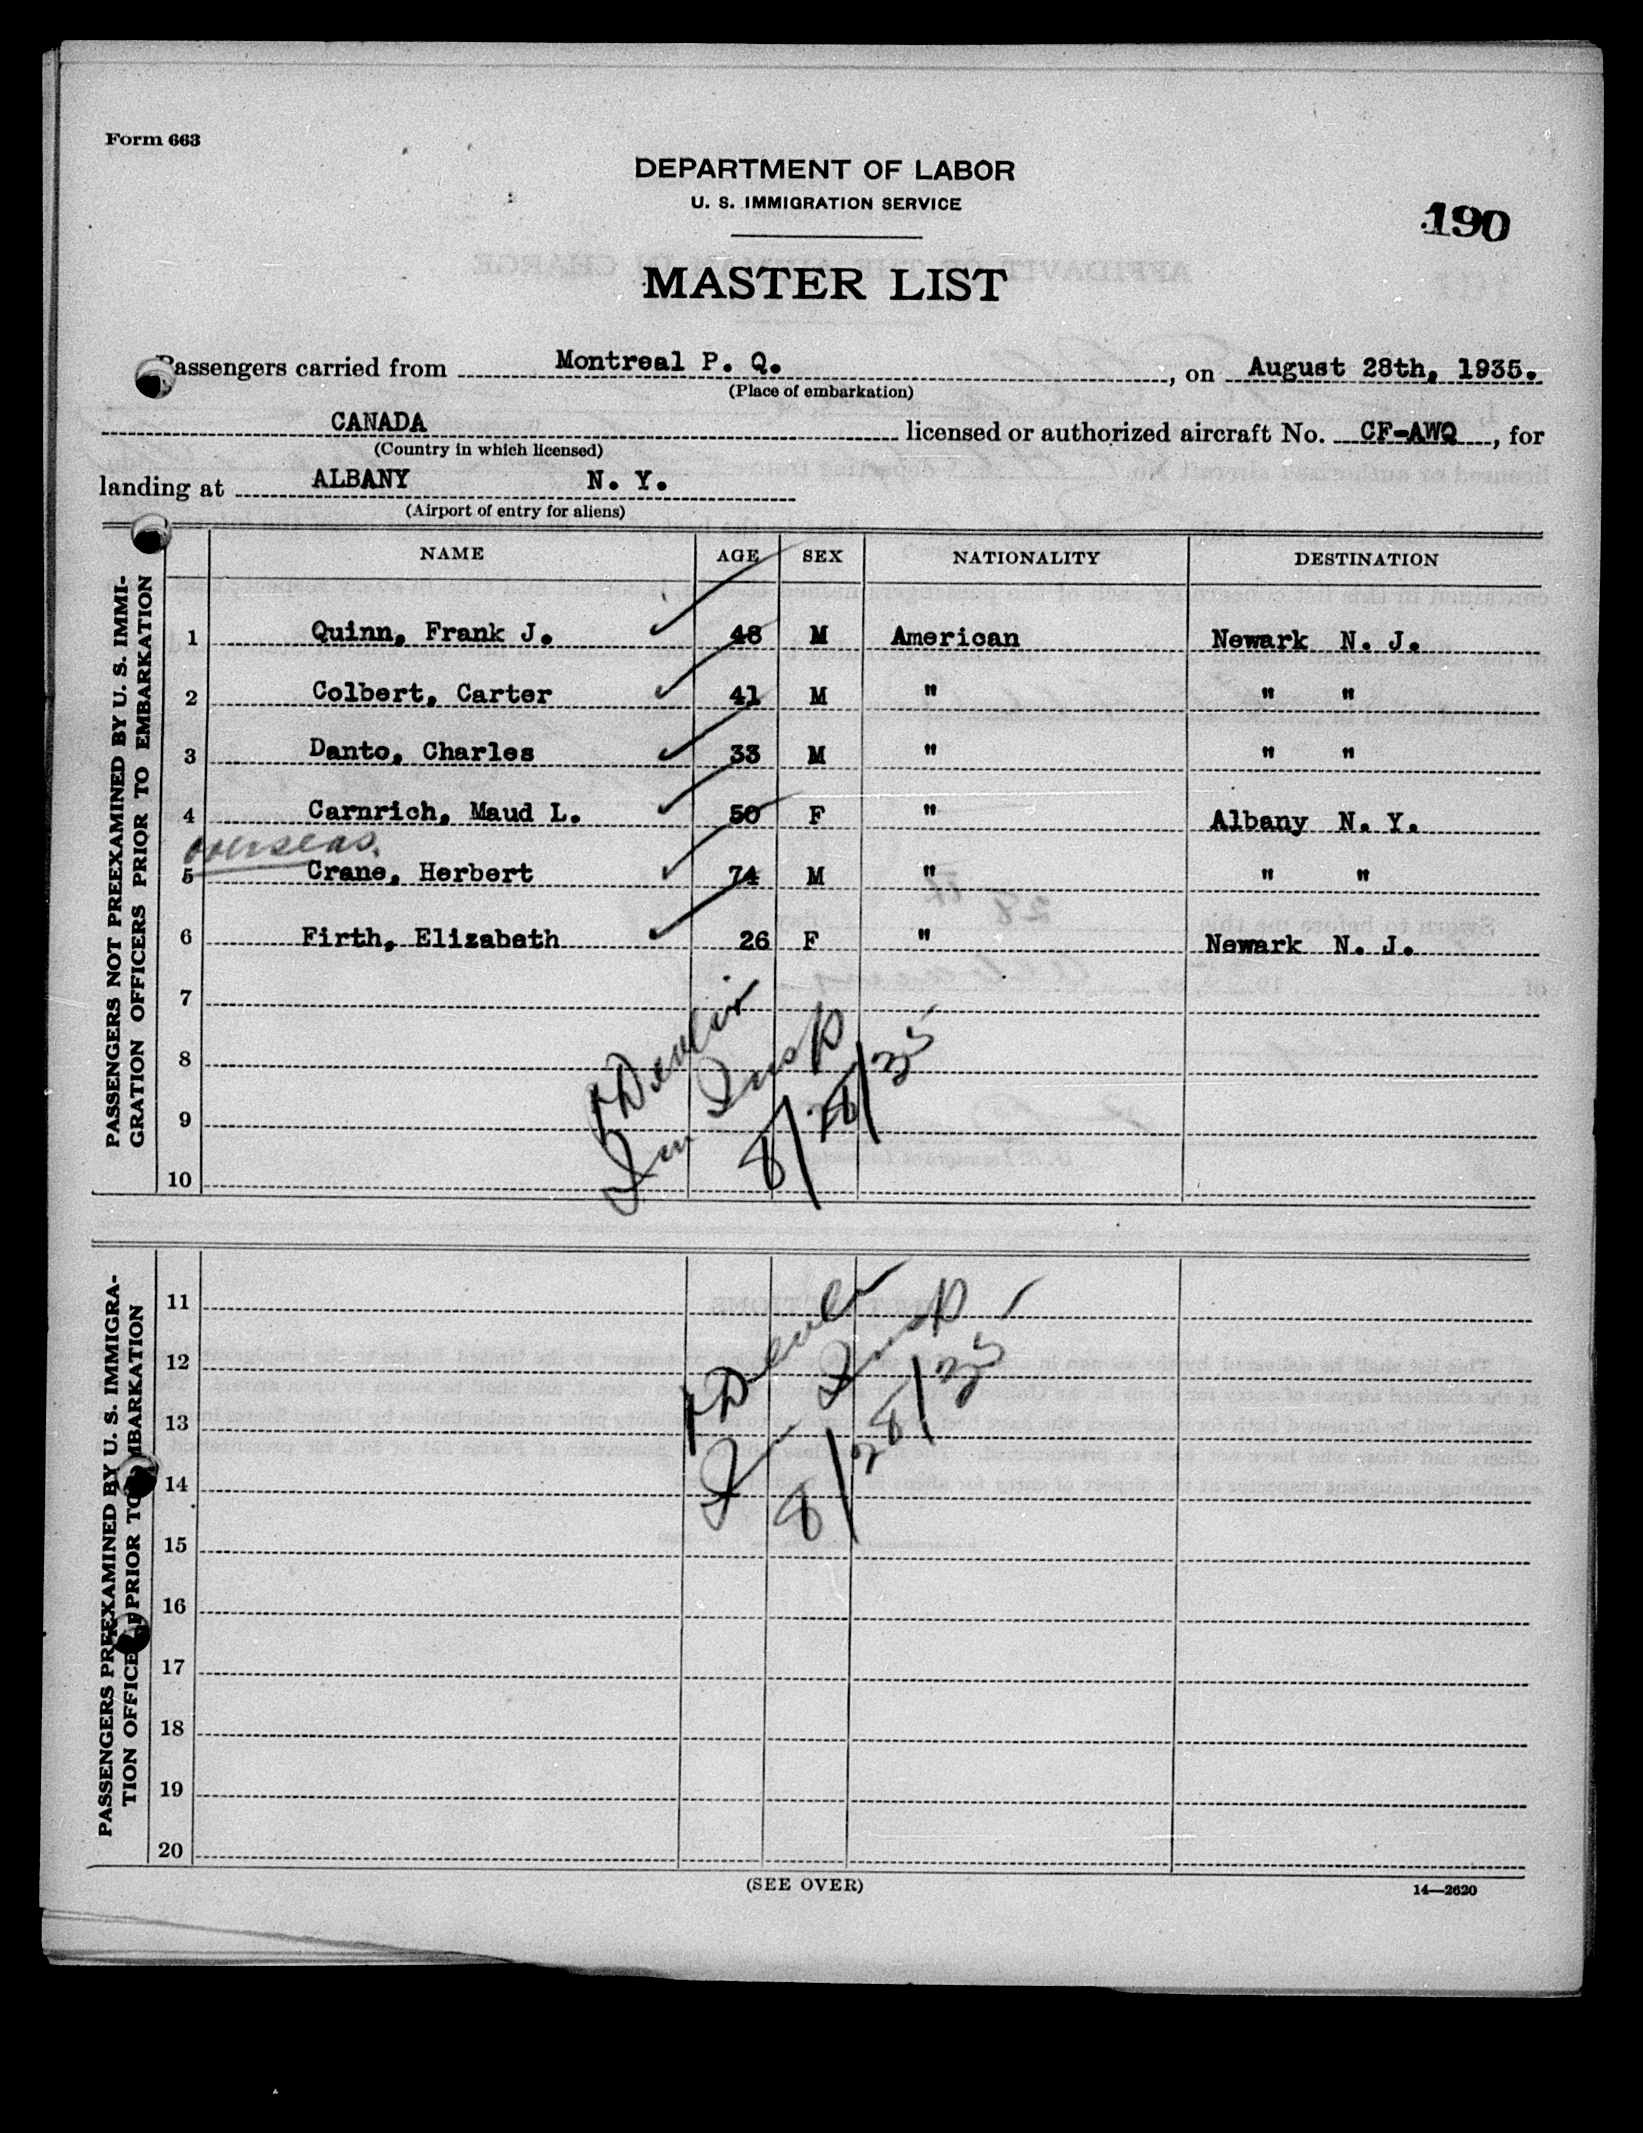 Form 663
DEPARTMENT OF LABOR
U. S. IMMIGRATION SERVICE
190
MASTER LIST
Passengers carried from Montreal P. Q., on August 28th, 1935.
(Place of embarkation)
CANADA licensed or authorized aircraft No. CF-AWQ, for
(Country in which licensed)
landing at ALBANY N. Y.
(Airport of entry for aliens)
NAME AGE SEX NATIONALITY DESTINATION
PASSENGERS NOT PREEXAMINED BY U. S. IMMI-
GRATION OFFICERS PRIOR TO EMBARKATION
1 Quinn, Frank J. 48 M American Newark N. J.
2 Colbert, Carter 41 M " " "
3 Danto, Charles 33 M " " "
4 Carnrich, Maud L. 50 F " Albany N. Y.
overseas.
5 Crane, Herbert 74 M " " "
6 Firth, Elizabeth 26 F " Newark N. J.
7
8
9
10
Devlin
Imm Insp
8/28/35
PASSENGERS PREEXAMINED BY U. S. IMMIGRA-
TION OFFICERS PRIOR TO EMBARKATION
11
12
13
14
15
16
17
18
19
20
Devlin
Imm Insp
8/28/35
(SEE OVER)
14—2620